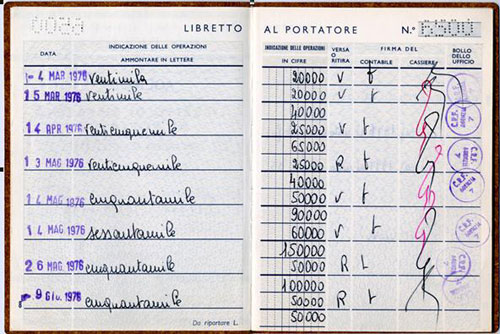 LIBRETTO AL PORTATORE N.° 6500
DATA INDICAZIONE DELLE OPERAZIONI AMMONTARE IN LETTERE INDICAZIONE DELLE OPERAZIONI IN CIFRE VERSA O RITIRA FIRMA DEL CONTABILE CASSIERE BOLLO DELL' UFFICIO
- 4 MAR 1976 ventimila 20000 V t
15 MAR 1976 ventimile 20000 V t
40000
14 APR 1976 venticinquemile 25000 V t
65000
13 MAG 1976 venticinquemile 25000 R t
40000
14 MAG 1976 cinquantamile 50000 V t
90000
14 MAG 1976 sessantamile 60000 V t
150000
26 MAG 1976 cinquantamile 50000 R t
100000
- 9 GIU 1976 cinquantamile 50000 R t
Da riportare L. 50000